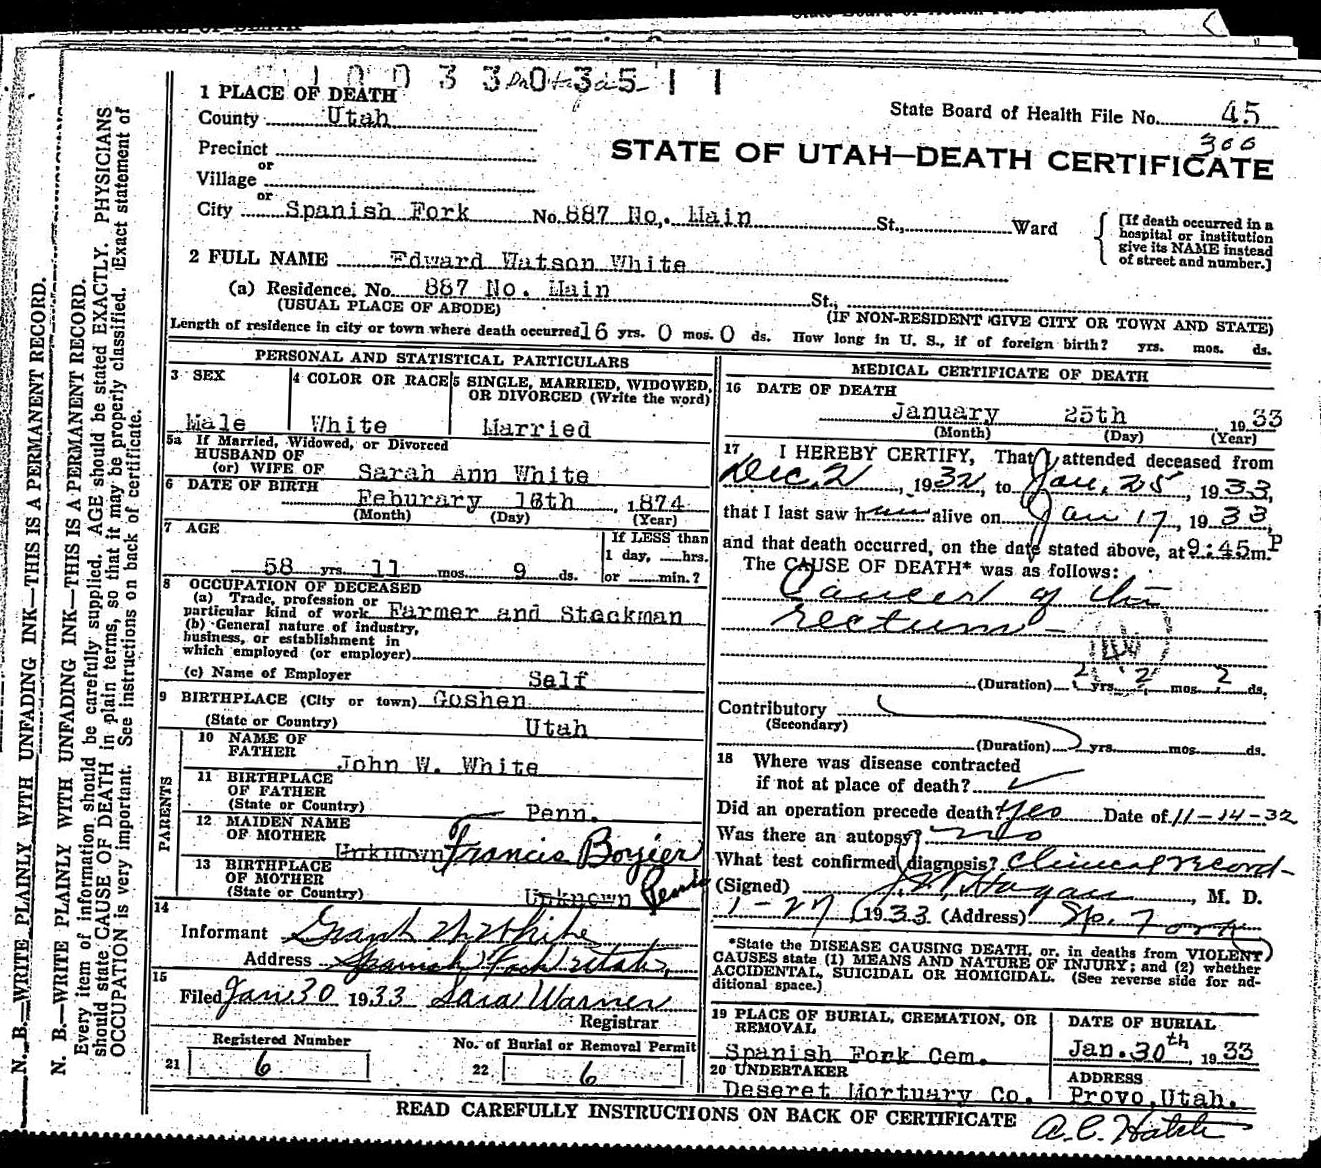 1 PLACE OF DEATH
County Utah
State Board of Health File No. 45
300
Precinct
or
Village
or
STATE OF UTAH—DEATH CERTIFICATE
City Spanish Fork No. 887 No. Main St., Ward
[If death occurred in a hospital or institution give its NAME instead of street and number.]
2 FULL NAME Edward Watson White
(a) Residence. No. 887 No. Main St.,
(USUAL PLACE OF ABODE) (IF NON-RESIDENT GIVE CITY OR TOWN AND STATE)
Length of residence in city or town where death occurred 16 yrs. 0 mos. 0 ds. How long in U. S., if of foreign birth? yrs. mos. ds.
PERSONAL AND STATISTICAL PARTICULARS
3 SEX
Male
4 COLOR OR RACE
White
5 SINGLE, MARRIED, WIDOWED, OR DIVORCED (Write the word)
Married
5a If Married, Widowed, or Divorced
HUSBAND OF
(or) WIFE OF Sarah Ann White
6 DATE OF BIRTH
Feburary 16th, 1874
(Month) (Day) (Year)
7 AGE
58 yrs. 11 mos. 9 ds.
If LESS than
1 day, hrs.
or min.?
8 OCCUPATION OF DECEASED
(a) Trade, profession or
particular kind of work Farmer and Stockman
(b) General nature of industry,
business, or establishment in
which employed (or employer)
(c) Name of Employer Self
9 BIRTHPLACE (City or town) Goshen
(State or Country) Utah
PARENTS
10 NAME OF
FATHER John W. White
11 BIRTHPLACE
OF FATHER
(State or Country) Penn.
12 MAIDEN NAME
OF MOTHER Unknown Francis Bozier
13 BIRTHPLACE
OF MOTHER
(State or Country) Unknown
14
Informant Grant W White
Address Spanish Fork Utah,
15
Filed Jan. 30 1933 Sara Warner
Registrar
Registered Number
21 6
No. of Burial or Removal Permit
22 6
MEDICAL CERTIFICATE OF DEATH
16 DATE OF DEATH
January 25th 1933
(Month) (Day) (Year)
17 I HEREBY CERTIFY, That I attended deceased from
Dec. 2, 1932, to Jan. 25, 1933,
that I last saw him alive on Jan 17, 1933,
and that death occurred, on the date stated above, at 9:45 P m.
The CAUSE OF DEATH* was as follows:
Cancer of the
rectum
(Duration) yrs. 2 mos. 2 ds.
Contributory
(Secondary)
(Duration) yrs. mos. ds.
18 Where was disease contracted
if not at place of death? ✓
Did an operation precede death? Yes Date of 11-14-32
Was there an autopsy? no
What test confirmed diagnosis? Clinical record
(Signed) Hagan, M. D.
1-27 1933 (Address) Sp. Fork
*State the DISEASE CAUSING DEATH, or, in deaths from VIOLENT
CAUSES state (1) MEANS AND NATURE OF INJURY; and (2) whether
ACCIDENTAL, SUICIDAL OR HOMICIDAL. (See reverse side for ad-
ditional space.)
19 PLACE OF BURIAL, CREMATION, OR
REMOVAL
Spanish Fork Cem.
DATE OF BURIAL
Jan. 30th, 1933
20 UNDERTAKER
Deseret Mortuary Co.
ADDRESS
Provo, Utah.
READ CAREFULLY INSTRUCTIONS ON BACK OF CERTIFICATE
A. C. Hatch
N. B.—WRITE PLAINLY WITH UNFADING INK—THIS IS A PERMANENT RECORD.
N. B.—WRITE PLAINLY WITH UNFADING INK—THIS IS A PERMANENT RECORD.
Every item of information should be carefully supplied. AGE should be stated EXACTLY. PHYSICIANS
should state CAUSE OF DEATH in plain terms, so that it may be properly classified. Exact statement of
OCCUPATION is very important. See instructions on back of certificate.